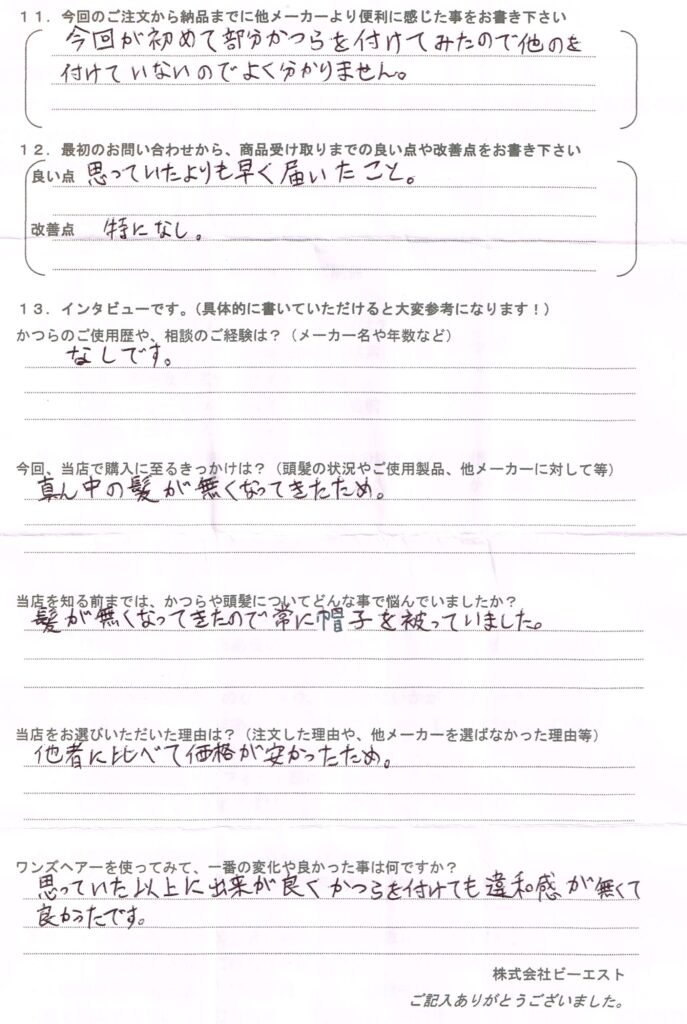 １１．今回のご注文から納品までに他メーカーより便利に感じた事をお書き下さい
今回が初めて部分かつらを付けてみたので他のを
付けていないのでよく分かりません。
１２．最初のお問い合わせから、商品受け取りまでの良い点や改善点をお書き下さい
良い点 思っていたよりも早く届いたこと。
改善点 特になし。
１３．インタビューです。（具体的に書いていただけると大変参考になります！）
かつらのご使用歴や、相談のご経験は？（メーカー名や年数など）
なしです。
今回、当店で購入に至るきっかけは？（頭髪の状況やご使用製品、他メーカーに対して等）
真ん中の髪が無くなってきたため。
当店を知る前までは、かつらや頭髪についてどんな事で悩んでいましたか？
髪が無くなってきたので常に帽子を被っていました。
当店をお選びいただいた理由は？（注文した理由や、他メーカーを選ばなかった理由等）
他者に比べて価格が安かったため。
ワンズヘアーを使ってみて、一番の変化や良かった事は何ですか？
思っていた以上に出来が良くかつらを付けても違和感が無くて
良かったです。
株式会社ビーエスト
ご記入ありがとうございました。